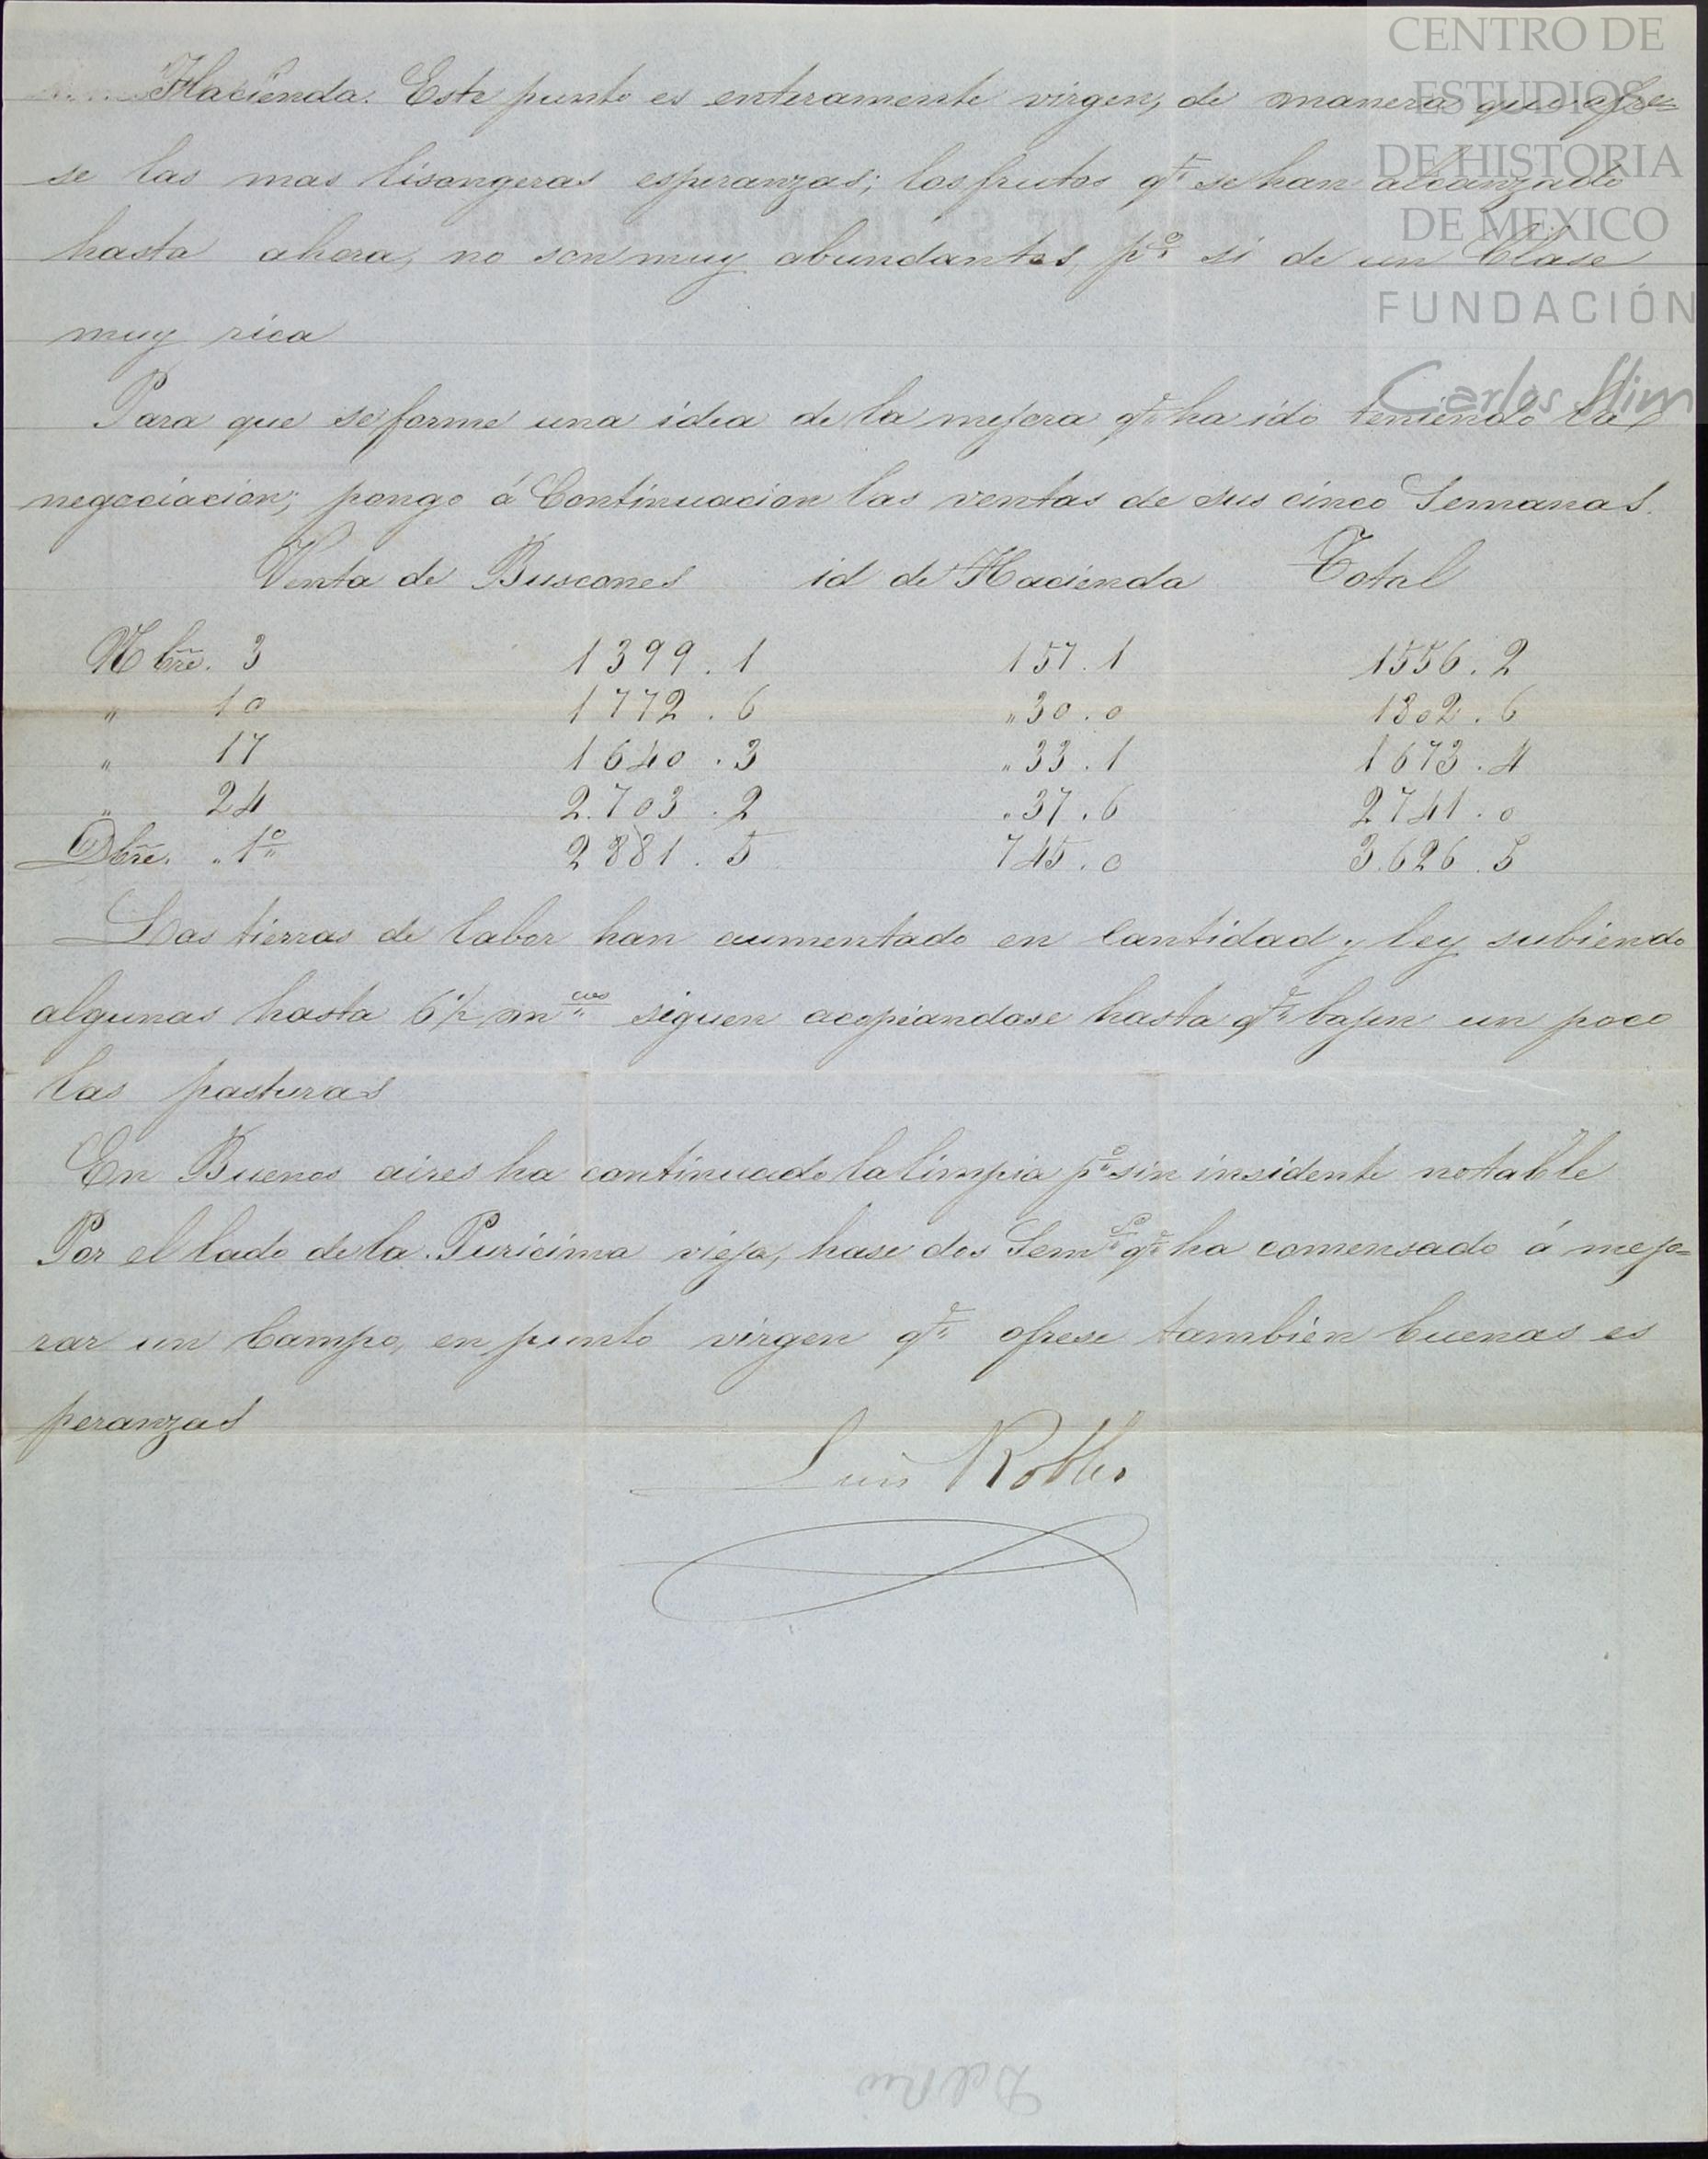 Hacienda. Este punto es enteramente virgen, de manera que ofre=
se las mas lisongeras esperanzas; los frutos qe. se han alcanzado
hasta ahora, no son muy abundantes, po. si de un Clase
muy rica
Para que se forme una idea de la mejora qe. ha ido teniendo la
negociacion; pongo á Continuacion las ventas de sus cinco Semanas.
Venta de Buscones id de Hacienda Total
Nbre. 3 1399.1 157.1 1556.2
" 10 1772.6 "30.0 1802.6
" 17 1640.3 "33.1 1673.4
" 24 2.703.2 "37.6 2741.0
Dbre. "1o. 2881.5 745.0 3.626.5
Las tierras de labor han aumentado en Cantidad y ley subiendo
algunas hasta 6 1/2 mcos. siguen acopiandose hasta qe. bajen un poco
las pasturas
En Buenos aires ha continuado la limpia po. sin insidente notable
Por el lado de la Puricima vieja, hase dos Sems. qe. ha comensado á mejo=
rar un Campo, en punto virgen qe. ofrese tambien buenas es
peranzas
Luis Robles
CENTRO DE
ESTUDIOS
DE HISTORIA
DE MEXICO
FUNDACIÓN
Carlos Slim